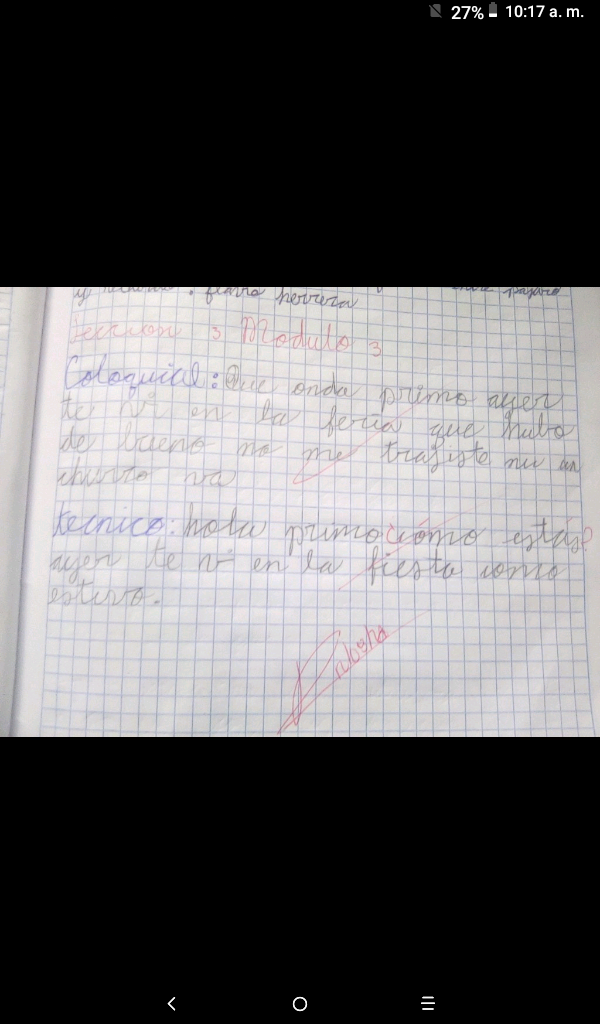 27% 10:17 a. m.
herrera
Leccion 3 Modulo 3
Coloquial: Que onda primo ayer
te vi en la feria que hubo
de bueno no me trajiste ni un
churro va
tecnico: hola primo ¿cómo estás?
ayer te vi en la fiesta como
estuvo.